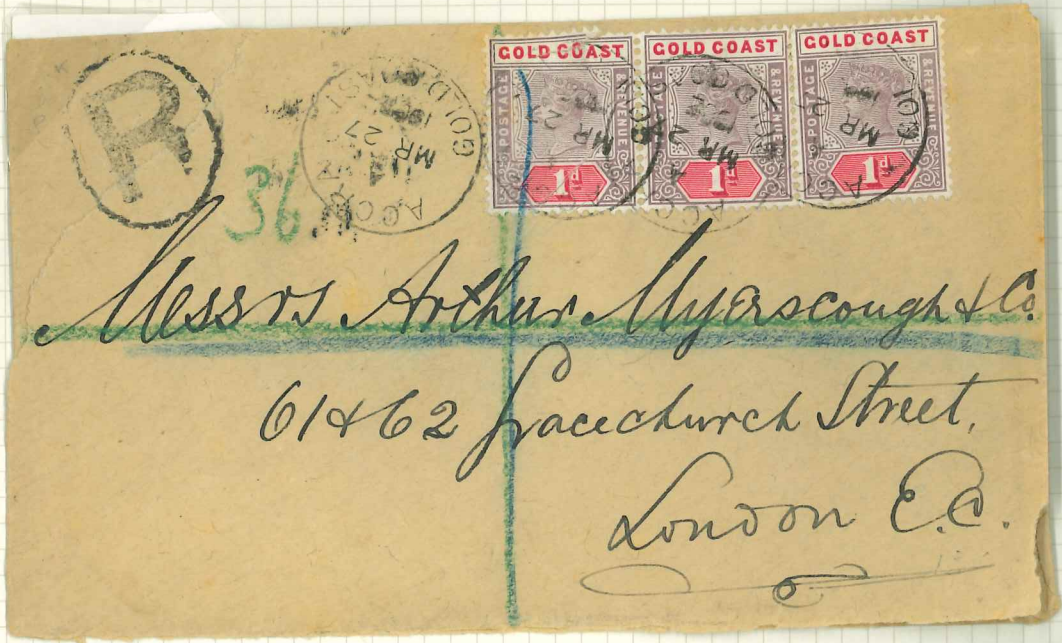 R
36
ACCRA
MR 27
GOLD COAST
GOLD COAST
POSTAGE & REVENUE
1d
GOLD COAST
POSTAGE & REVENUE
1d
GOLD COAST
POSTAGE & REVENUE
1d
Messrs Arthur Myerscough & Co.
61 & 62 Gracechurch Street,
London E.C.